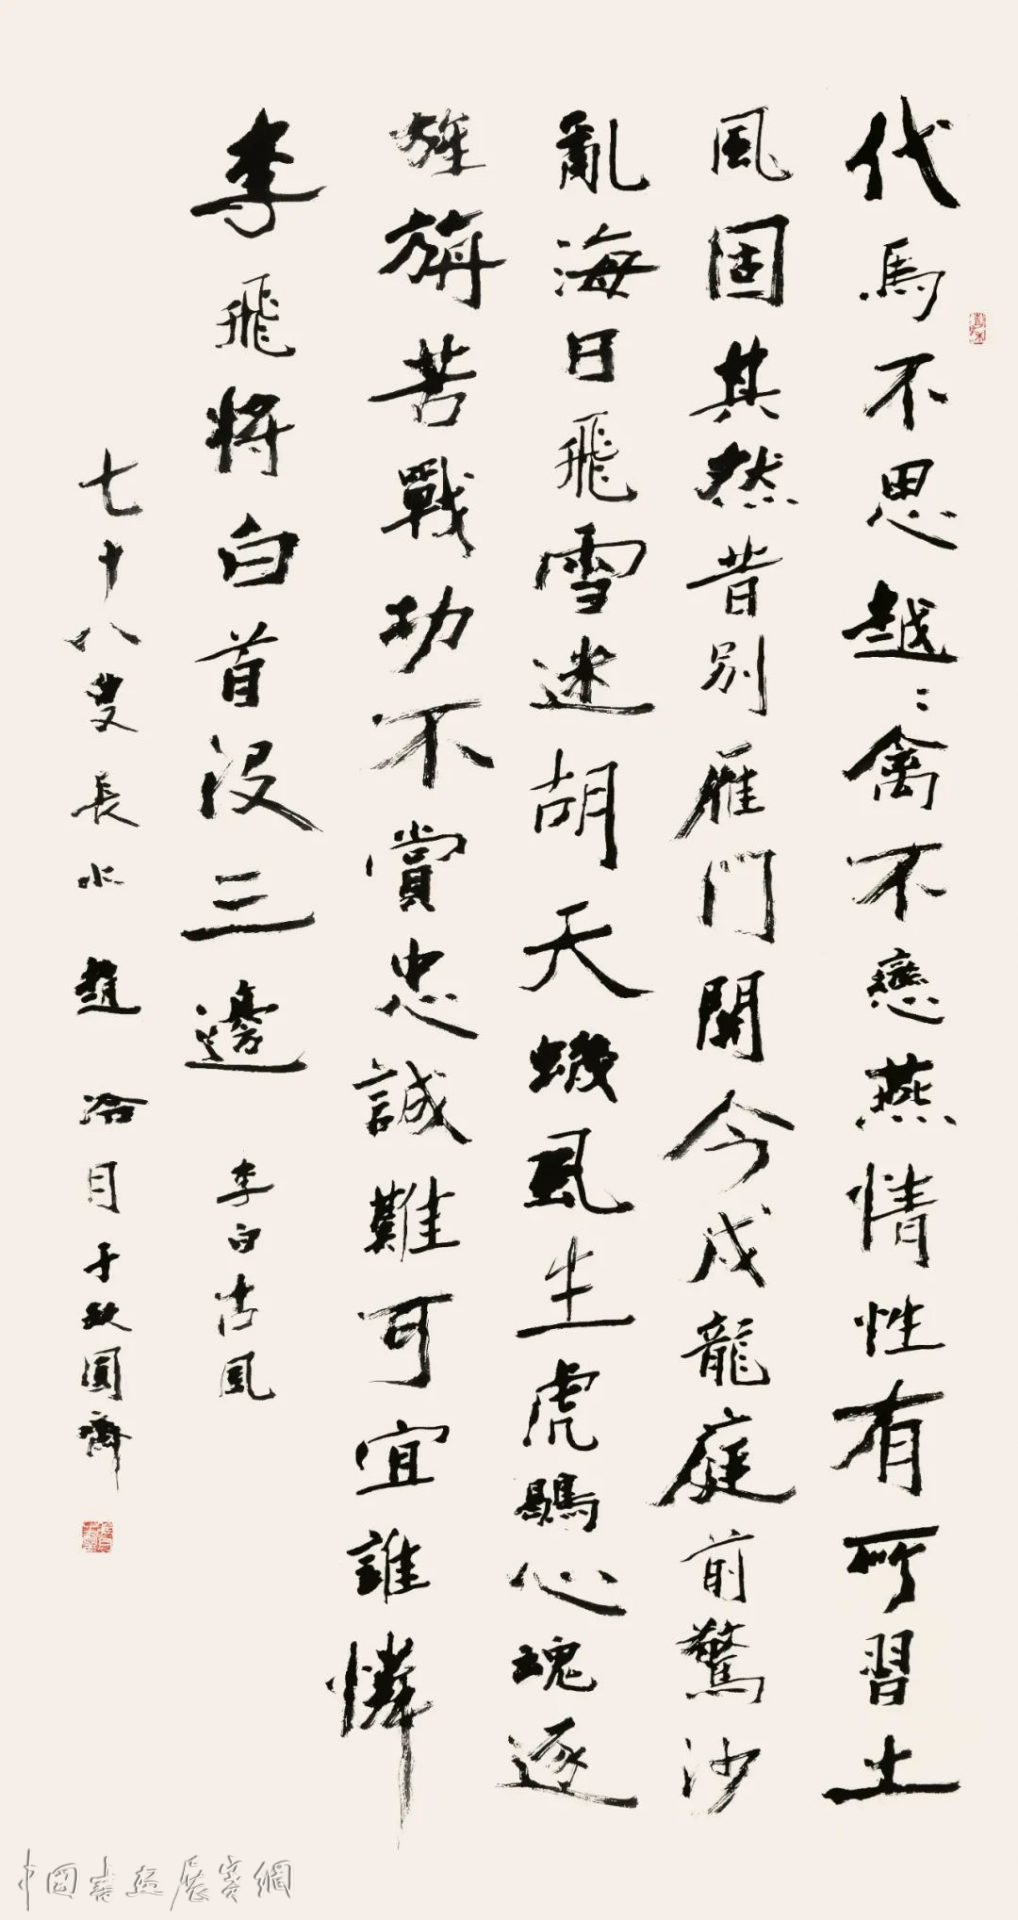 代馬不思越〻禽不戀燕情性有所習土
風固其然昔別雁門關今戍龍庭前驚沙
亂海日飛雪迷胡天蟣虱生虎鶡心魂逐
旌旃苦戰功不賞忠誠難可宜誰憐
李飛將白首没三邊 李白古風
七十八叟長水趙冷月于缺圓齋
中國書畫展賽網